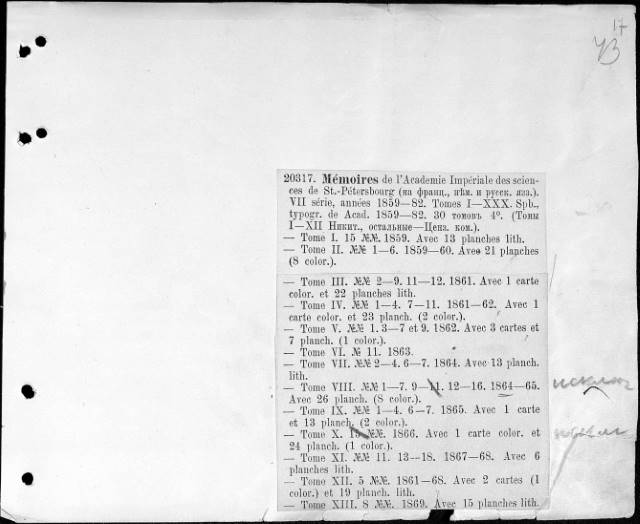 17
43
20317. Mémoires de l'Academie Impériale des scien-
ces de St.-Pétersbourg (на франц., нѣм. и русск. яза.).
VII série, années 1859—82. Tomes I—XXX. Spb.,
typogr. de Acad. 1859—82. 30 томовъ 4°. (Томы
I—XII Никит., остальные—Ценз. ком.).
— Tome I. 15 №№. 1859. Avec 13 planches lith.
— Tome II. №№ 1—6. 1859—60. Avec 21 planches
(8 color.).
— Tome III. №№ 2—9. 11—12. 1861. Avec 1 carte
color. et 22 planches lith.
— Tome IV. №№ 1—4. 7—11. 1861—62. Avec 1
carte color. et 23 planch. (2 color.).
— Tome V. №№ 1. 3—7 et 9. 1862. Avec 3 cartes et
7 planch. (1 color.).
— Tome VI. № 11. 1863.
— Tome VII. №№ 2—4. 6—7. 1864. Avec 13 planch.
lith.
— Tome VIII. №№ 1—7. 9—11. 12—16. 1864—65.
Avec 26 planch. (8 color.).
— Tome IX. №№ 1—4. 6—7. 1865. Avec 1 carte
et 13 planch. (2 color.).
— Tome X. 15 №№. 1866. Avec 1 carte color. et
24 planch. (1 color.).
— Tome XI. №№ 11. 13—18. 1867—68. Avec 6
planches lith.
— Tome XII. 5 №№. 1861—68. Avec 2 cartes (1
color.) et 19 planch. lith.
— Tome XIII. 8 №№. 1869. Avec 15 planches lith.